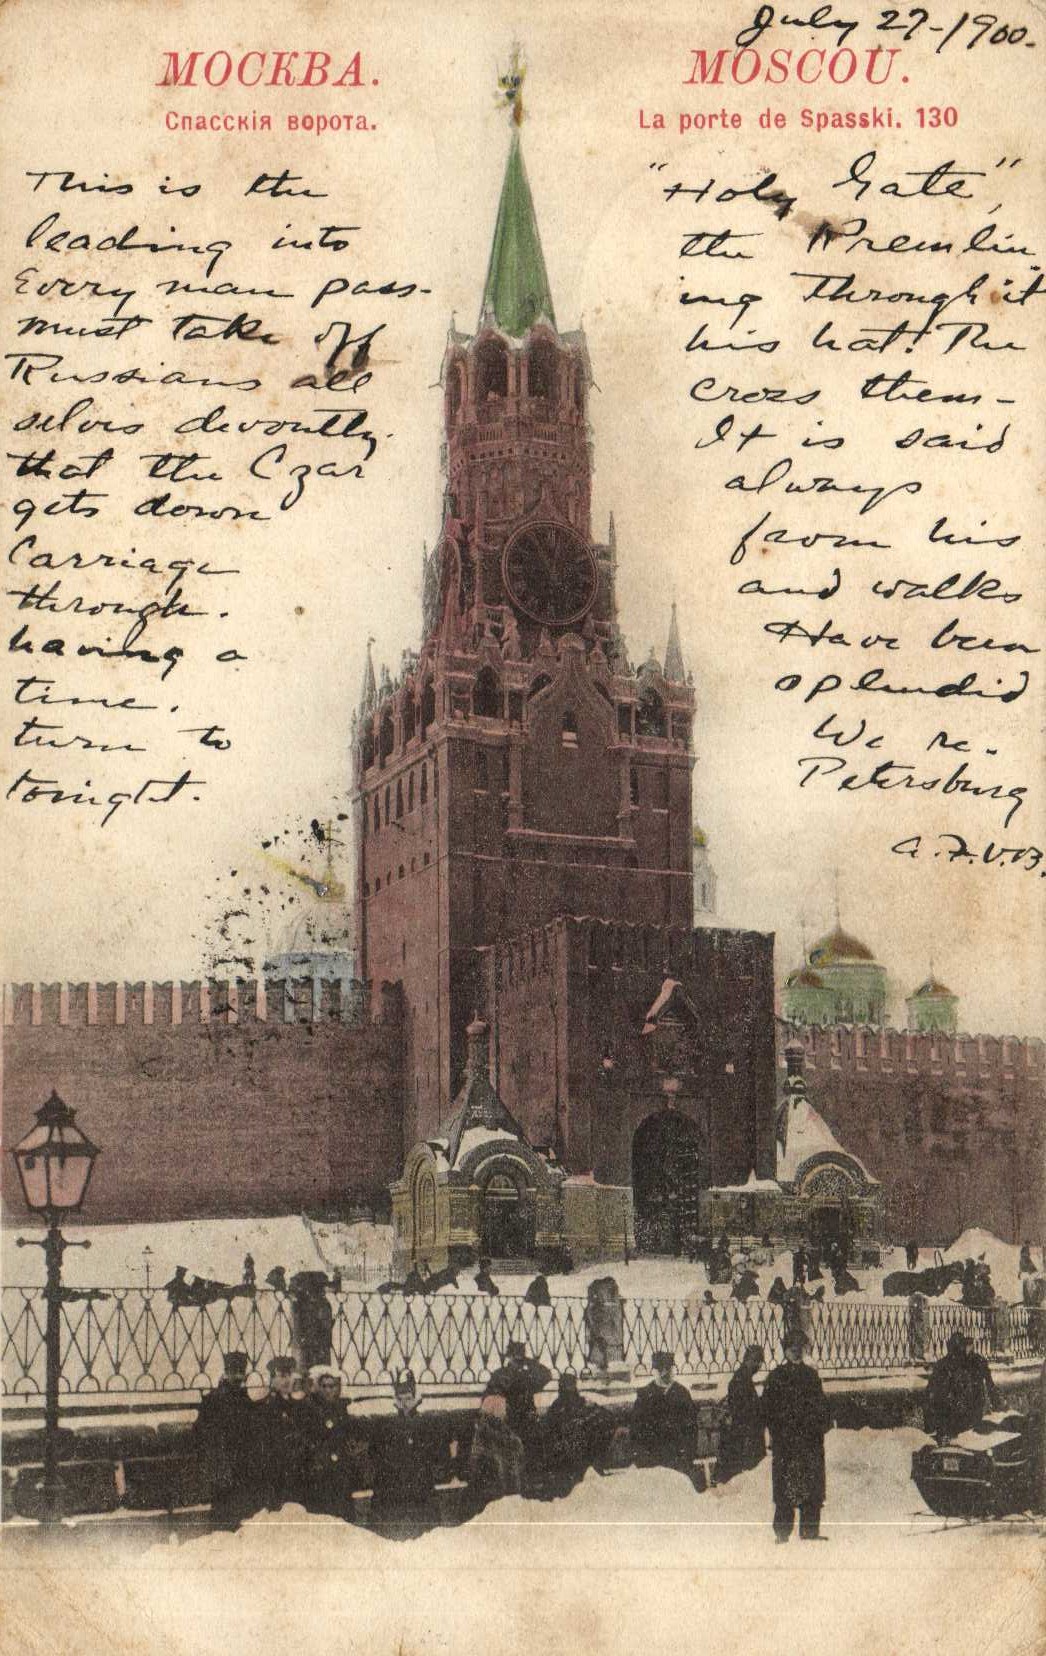 July 27-1900.
МОСКВА. MOSCOU.
Спасскія ворота. La porte de Spasski. 130
This is the "Holy Gate",
leading into the Kremlin.
Every man pass- ing through it
must take off his hat! The
Russians all cross them-
selves devoutly. It is said
that the Czar always
gets down from his
Carriage and walks
through. Have been
having a splendid
time. We re-
turn to Petersburg
tonight.
A.F.V.B.